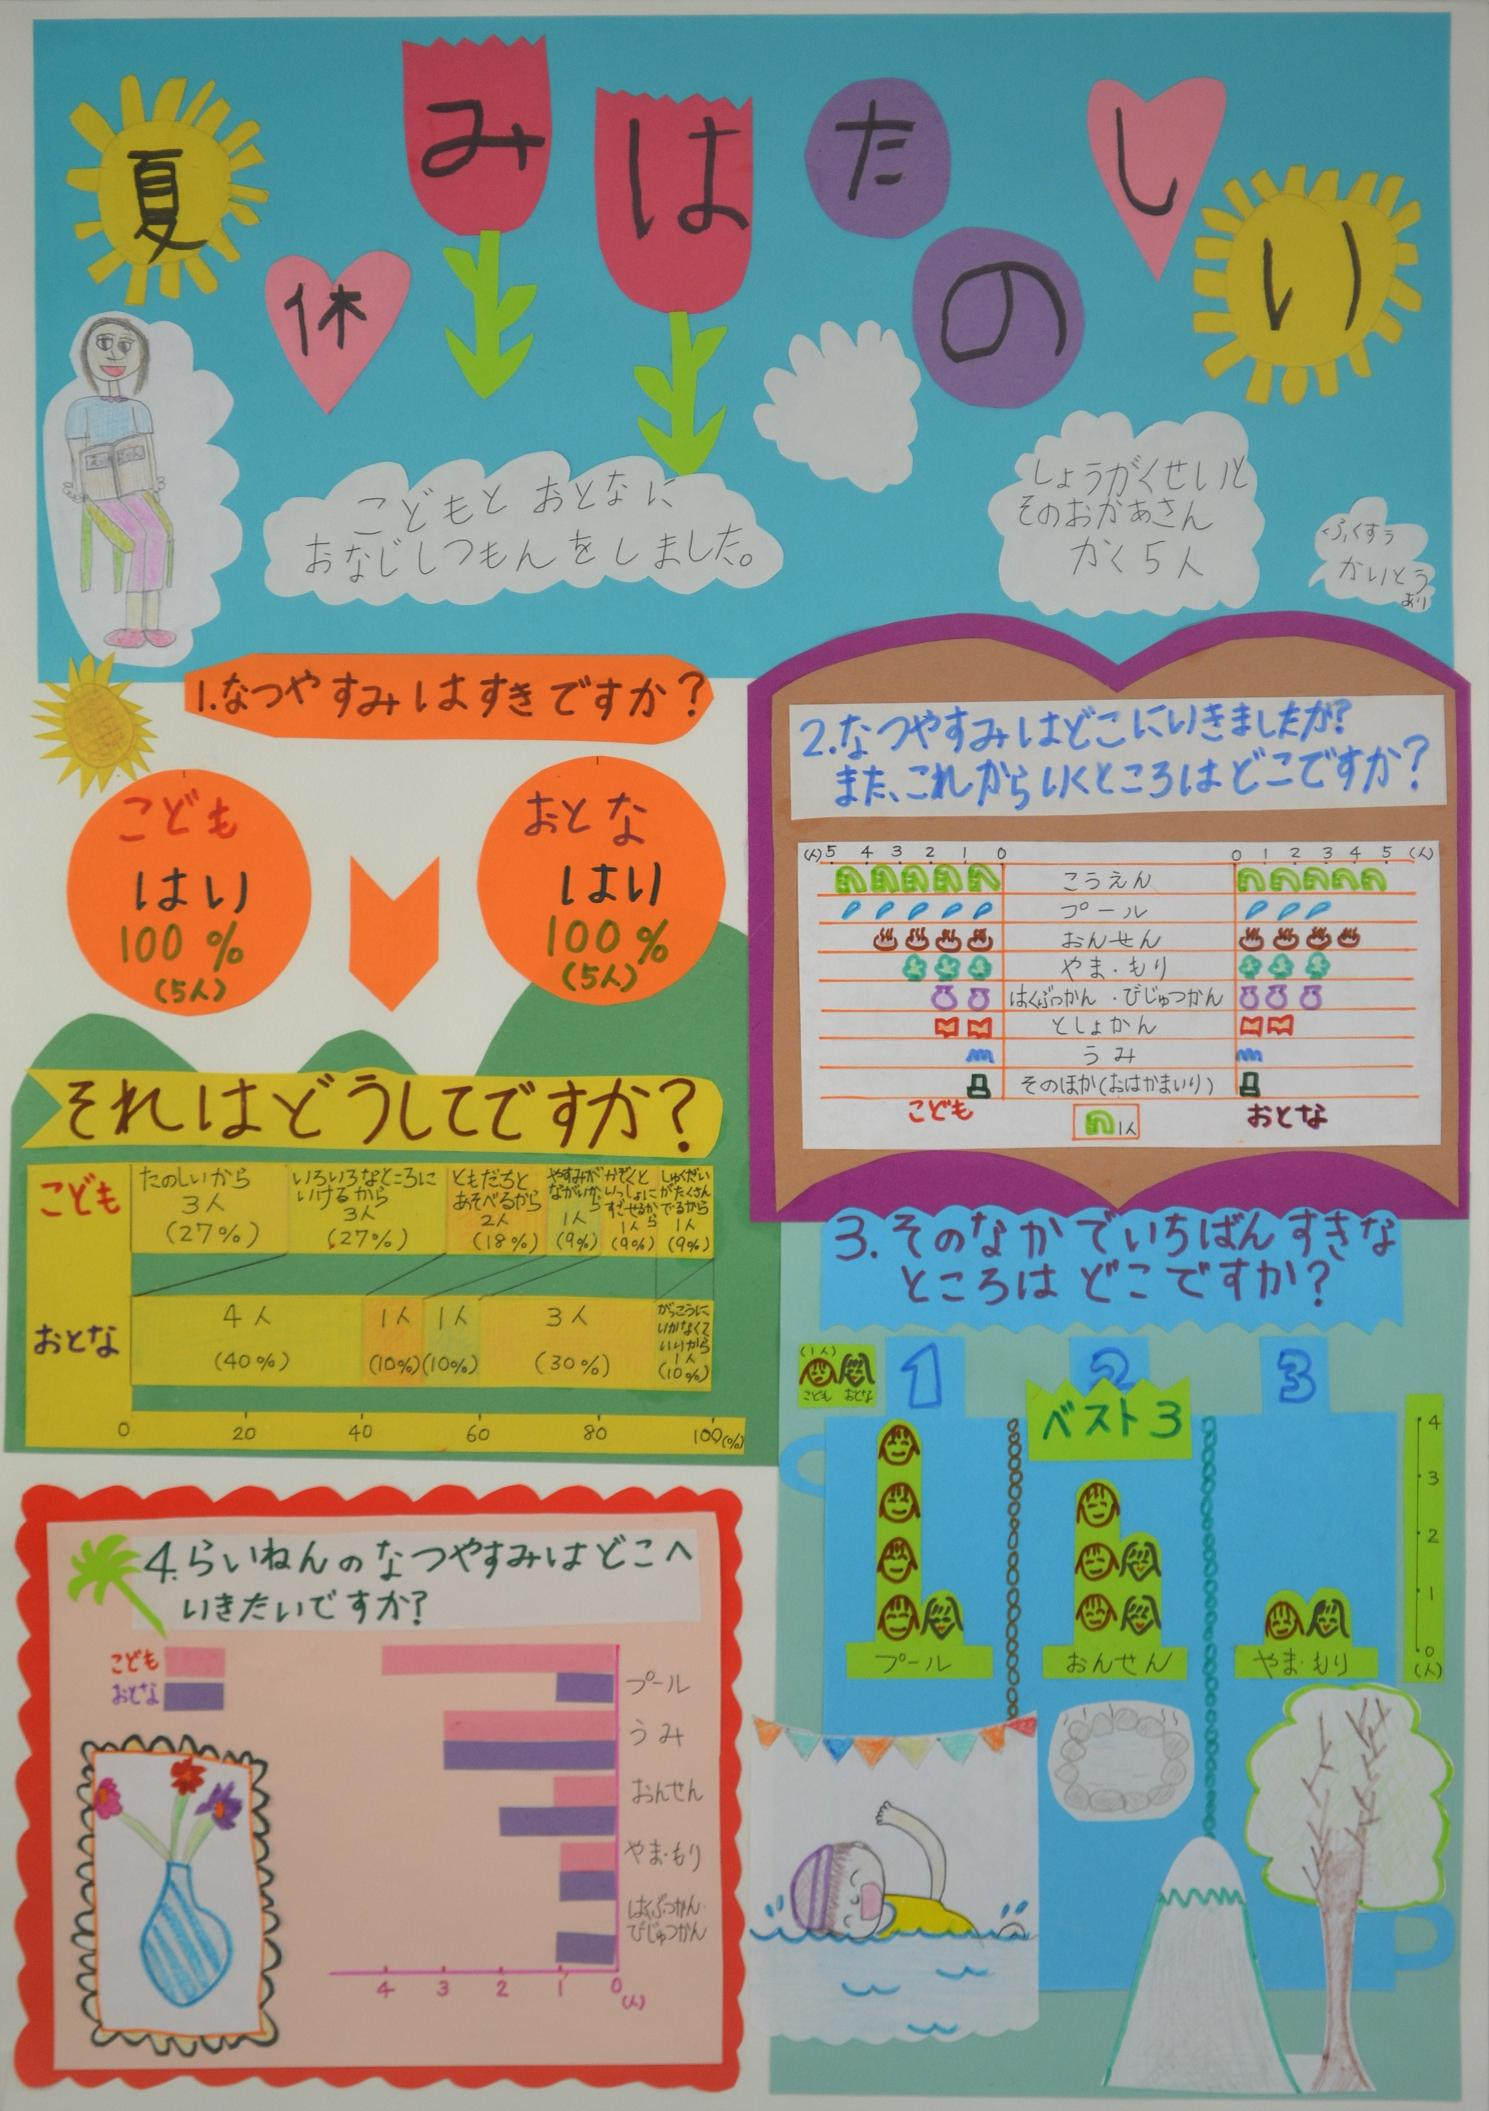 夏休みはたのしい
こどもと おとなに
おなじしつもんをしました。
しょうがくせいと
そのおかあさん
かく5人
ふくすう
かいとう
あり
1.なつやすみはすきですか?
こども
はい
100%
(5人)
おとな
はい
100%
(5人)
それはどうしてですか?
こども
たのしいから
3人
(27%)
いろいろなところに
いけるから
3人
(27%)
ともだちと
あそべるから
2人
(18%)
やすみが
ながいから
1人
(9%)
かぞくと
いっしょに
すごせるから
1人
(9%)
しゅくだい
がたくさん
でるから
1人
(9%)
おとな
4人
(40%)
1人
(10%)
1人
(10%)
3人
(30%)
がっこうに
いかなくて
いいから
1人
(10%)
0 20 40 60 80 100(%)
2.なつやすみはどこにいきましたか?
また、これからいくところはどこですか?
(人)5 4 3 2 1 0 0 1 2 3 4 5 (人)
こうえん
プール
おんせん
やま・もり
はくぶつかん・びじゅつかん
としょかん
うみ
そのほか(おはかまいり)
こども
1人
おとな
3.そのなかでいちばんすきな
ところは どこですか?
(1人)
こども おとな
1 2 3
ベスト3
4
3
2
1
0
(人)
プール
おんせん
やま・もり
4.らいねんのなつやすみはどこへ
いきたいですか?
こども
おとな
プール
うみ
おんせん
やま・もり
はくぶつかん・
びじゅつかん
4 3 2 1 0
(人)